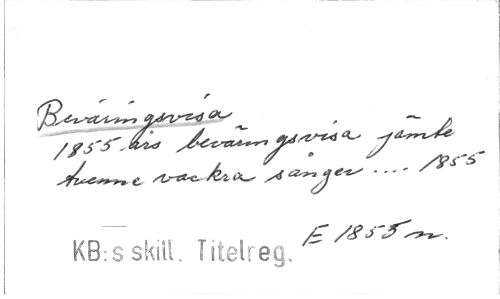 Beväringsvisa
1855 års beväringsvisa jämte
tvenne vackra sånger .... 1855
E 1855 n.
KB:s skill. Titelreg.